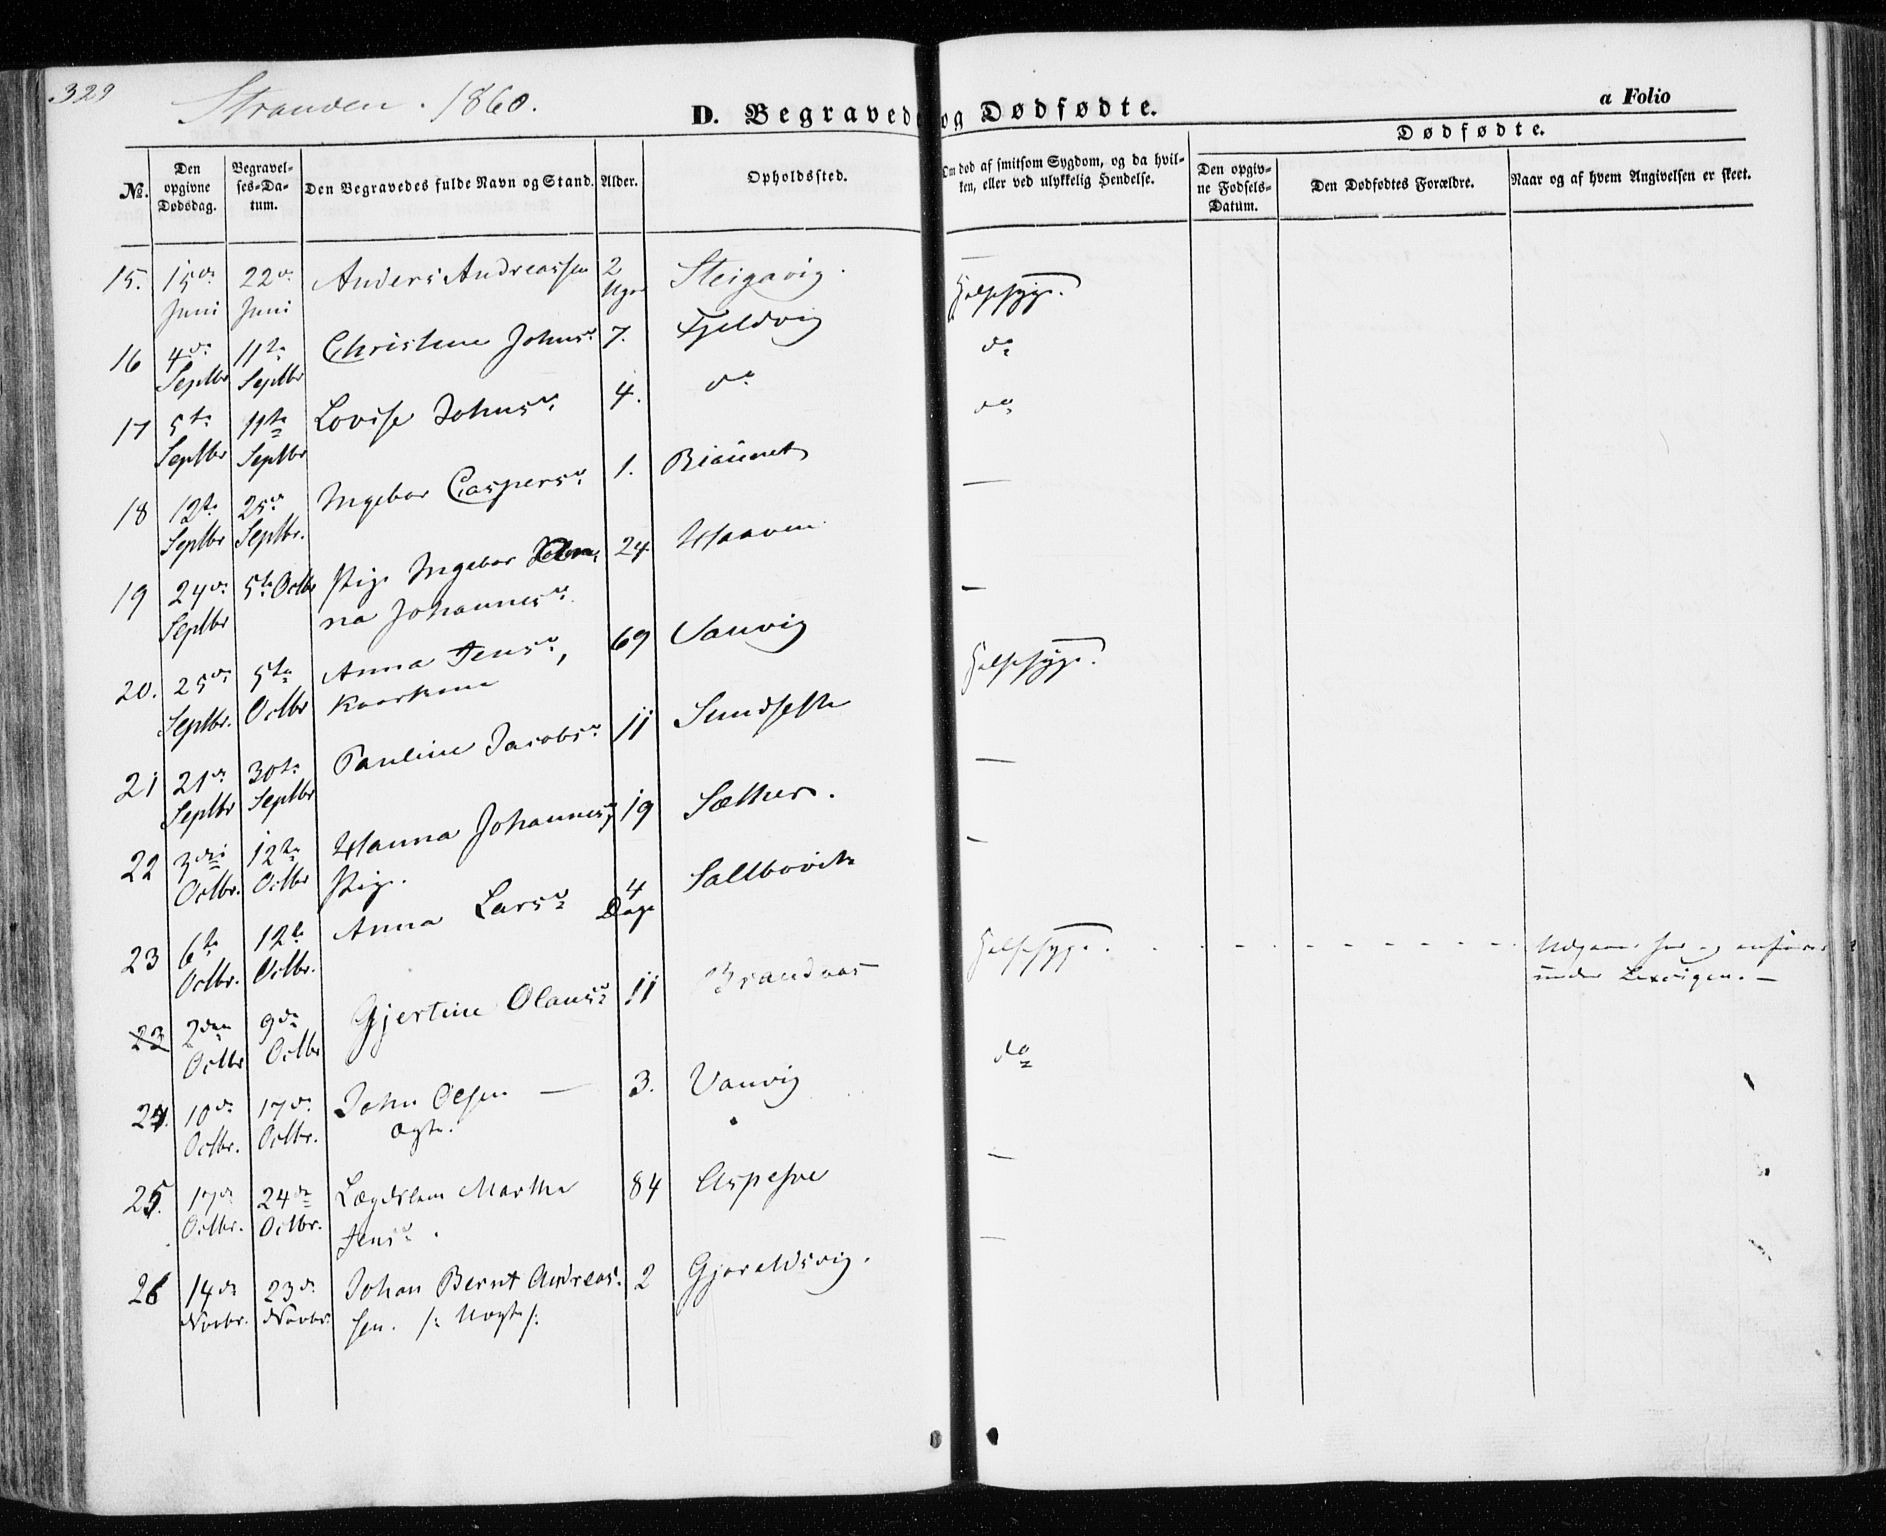 329
Stranden. 1860.
D. Begravede og Dødfødte.
a Folio
No.
Den opgivne Dødsdag.
Begravelses-Datum.
Den Begravedes fulde Navn og Stand.
Alder.
Opholdssted.
Om død af smitsom Sygdom, og da hvilken, eller ved ulykkelig Hendelse.
Dødfødte.
Den opgivne Fødsels-Datum.
Den Dødfødtes Forældre.
Naar og af hvem Angivelsen er skeet.
15. 15de Juni 22de Juni Anders Andreassen 2 Uger Steigavig. —
Halssyge.
16 4de Septbr 11te Septbr Christine Johnsd. 7. Fjeldvig do
17 5te Septbr 11te Septbr Lovise Johnsd. 4. do do
18 12te Septbr 25de Septbr. Ingebor Caspersd. 1. —
19 24de Septbr 5te Octbr Pige Ingebor
na Johannesd. 24. Haaven —
20. 25de Septbr. 5te Octbr Anna Jensd., 69 Vanvig Halssyge.
21 21de Septbr 30te Septbr Pauline Jacobsd. 11 Sundsette —
22 3die Octbr. 12te Octbr Hanna Johannesd. 19 Sæther. —
Pige.
23 6te Octbr. 12te Octbr. Anna Larsd. 4 Dage
23 2den Octbr 9de Octbr Gjertine Olausd. 11 Brandaas Halssyge. - - - - -
under Lexvigen. —
24. 10de Octbr. 17de Octbr. John Olsen — 3. Vanvig do
ægte.
25. 17de Octbr. 24de Octbr. Lægdslem Martha 84 —
Jensd.
26 14de Novbr. 23de Novbr. Johan Bernt Andreas- 2 Gjøraldsvig. —
sen. /: Uægte :/